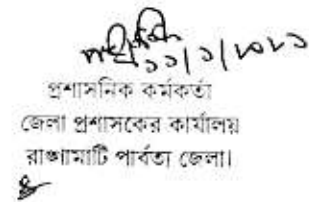 ১১/১/২০২১
প্রশাসনিক কর্মকর্তা
জেলা প্রশাসকের কার্যালয়
রাঙ্গামাটি পার্বত্য জেলা।